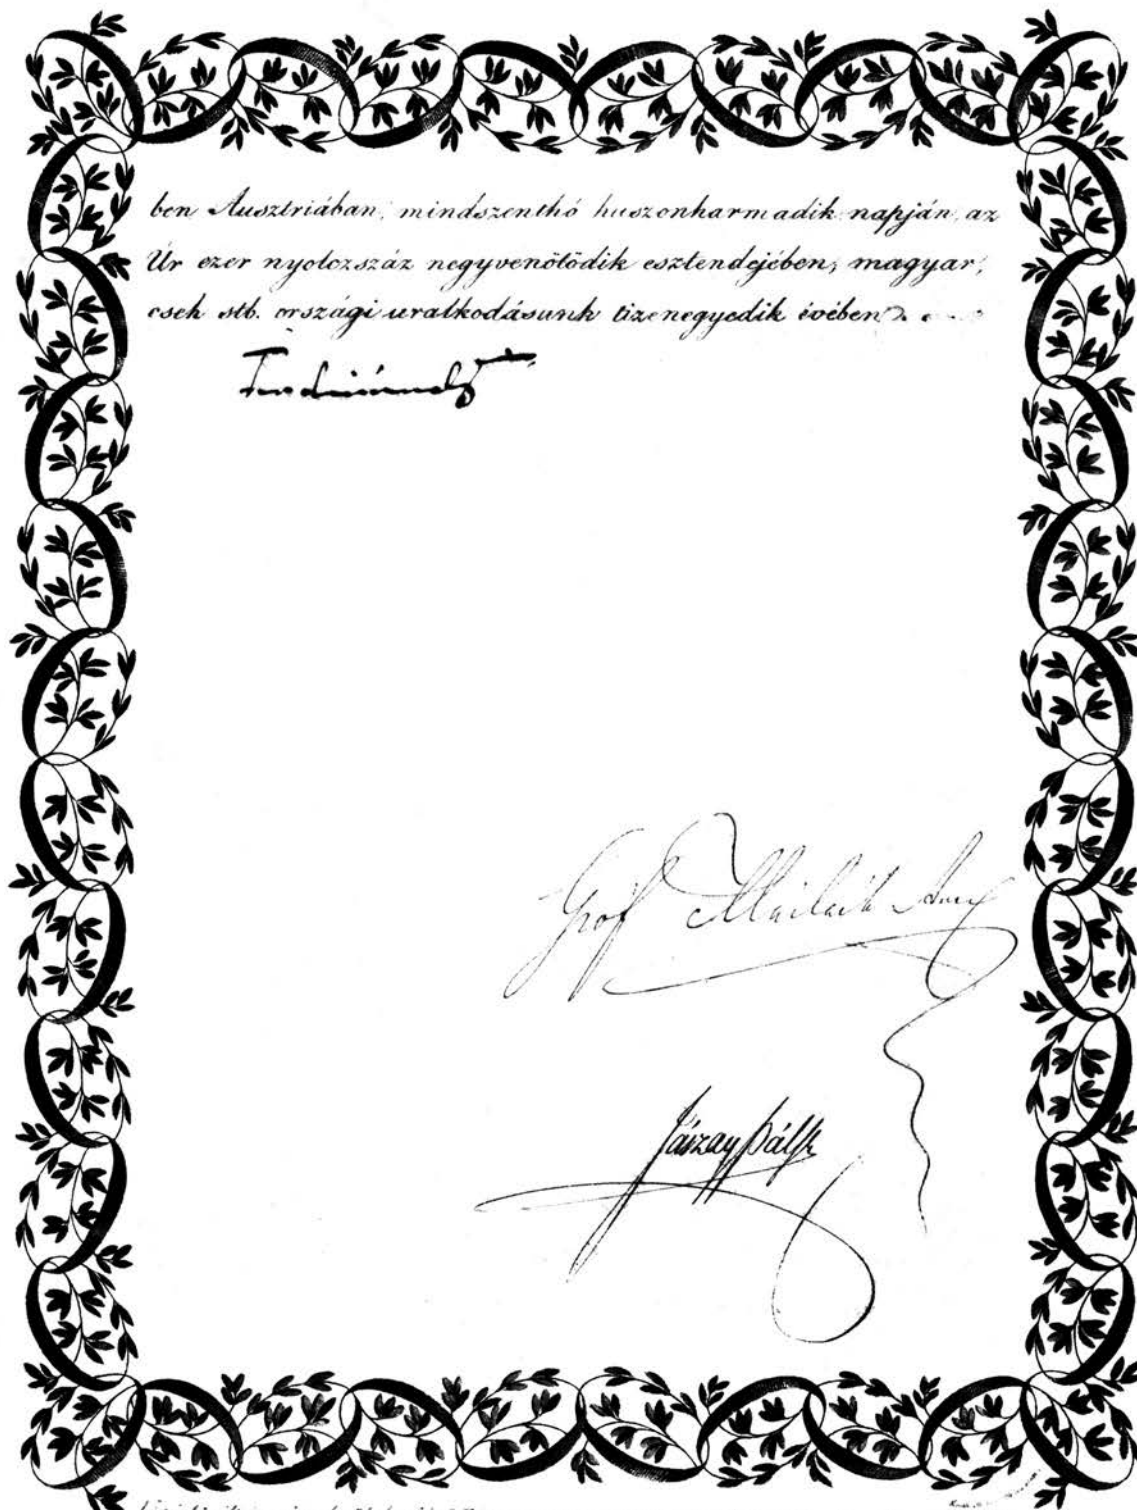 ben Ausztriában, mindszenthó huszonharmadik napján, az
Úr ezer nyolczszáz negyvenötödik esztendejében, magyar,
cseh stb. országi uralkodásunk tizenegyedik évében
Ferdinánd
Gróf Mailáth
Jászay Pál